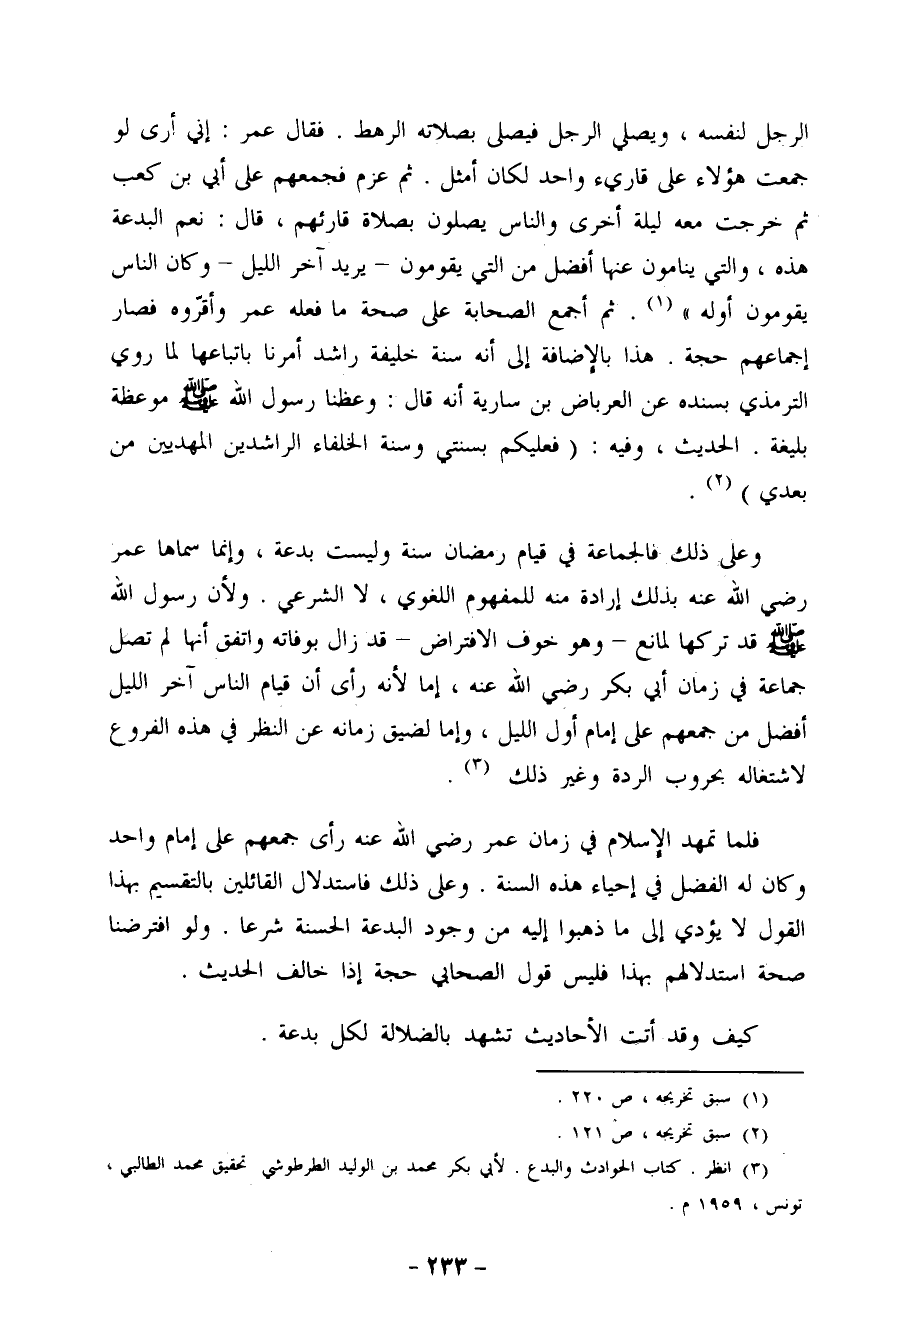 الرجل لنفسه ، ويصلي الرجل فيصلى بصلاته الرهط . فقال عمر : إني أرى لو
جمعت هؤلاء على قاريء واحد لكان أمثل . ثم عزم فجمعهم على أبي بن كعب
ثم خرجت معه ليلة أخرى والناس يصلون بصلاة قارئهم ، قال : نعم البدعة
هذه ، والتي ينامون عنها أفضل من التي يقومون – يريد آخر الليل – وكان الناس
يقومون أوله » (١) . ثم أجمع الصحابة على صحة ما فعله عمر وأقرّوه فصار
إجماعهم حجة . هذا بالإضافة إلى أنه سنة خليفة راشد أمرنا باتباعها لما روي
الترمذي بسنده عن العرباض بن سارية أنه قال : وعظنا رسول الله ﷺ موعظة
بليغة . الحديث ، وفيه : ( فعليكم بسنتي وسنة الخلفاء الراشدين المهديين من
بعدي ) (٢) .
وعلى ذلك فالجماعة في قيام رمضان سنة وليست بدعة ، وإنما سماها عمر
رضي الله عنه بذلك إرادة منه للمفهوم اللغوي ، لا الشرعي . ولأن رسول الله
ﷺ قد تركها لمانع – وهو خوف الافتراض – قد زال بوفاته واتفق أنها لم تصل
جماعة في زمان أبي بكر رضي الله عنه ، إما لأنه رأى أن قيام الناس آخر الليل
أفضل من جمعهم على إمام أول الليل ، وإما لضيق زمانه عن النظر في هذه الفروع
لاشتغاله بحروب الردة وغير ذلك (٣) .
فلما تمهد الإسلام في زمان عمر رضي الله عنه رأى جمعهم على إمام واحد
وكان له الفضل في إحياء هذه السنة . وعلى ذلك فاستدلال القائلين بالتقسيم بهذا
القول لا يؤدي إلى ما ذهبوا إليه من وجود البدعة الحسنة شرعا . ولو افترضنا
صحة استدلالهم بهذا فليس قول الصحابي حجة إذا خالف الحديث .
كيف وقد أتت الأحاديث تشهد بالضلالة لكل بدعة .
(١) سبق تخريجه ، ص ٢٢٠ .
(٢) سبق تخريجه ، ص ١٢١ .
(٣) انظر . كتاب الحوادث والبدع . لأبي بكر محمد بن الوليد الطرطوشي تحقيق محمد الطالبي ،
تونس ، ١٩٥٩ م .
- ٢٣٣ -